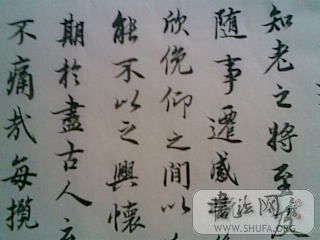 知老之將至及
随事遷感
欣俛仰之間以
能不以之興懷
期於盡古人云
不痛哉每攬
书法网
WWW.SHUFA.ORG